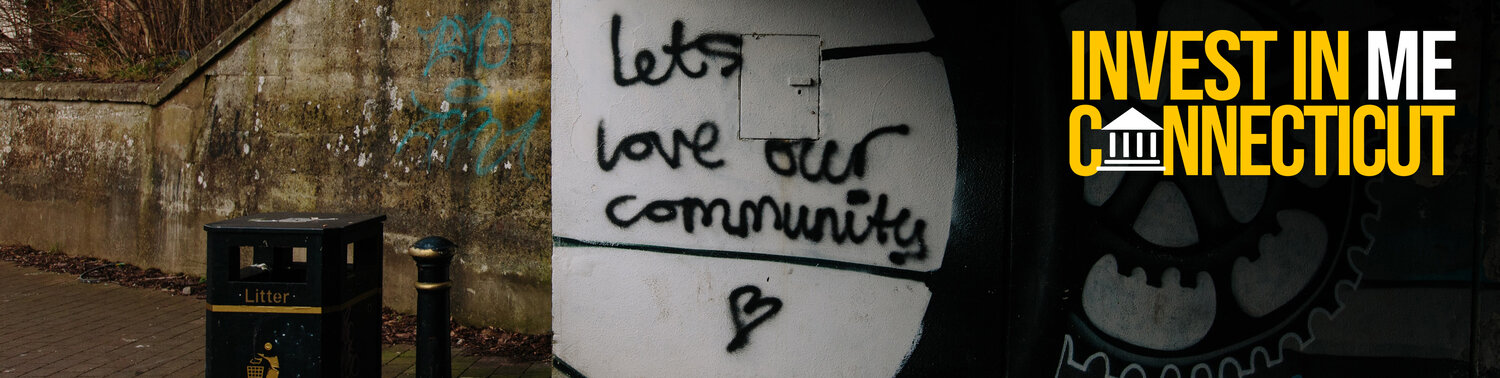 Litter
Lets
love our
community
INVEST IN ME
CONNECTICUT